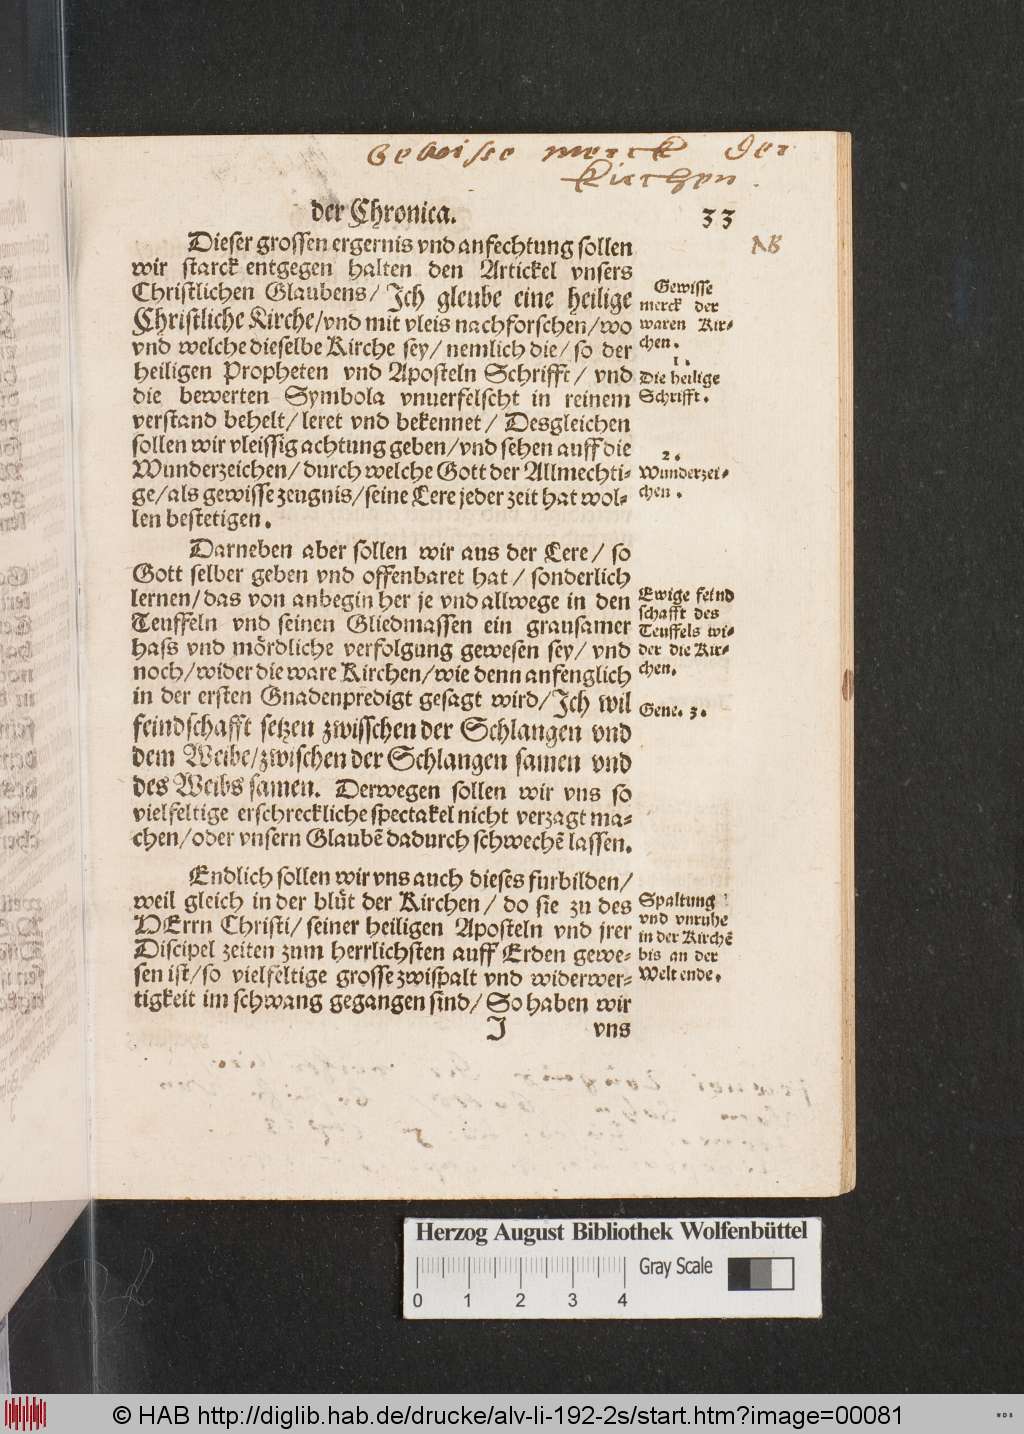 Gewisse merck der
Kirchen.
der Chronica.
33
NB
Dieser grossen ergernis vnd anfechtung sollen
wir starck entgegen halten den Artickel vnsers
Christlichen Glaubens/ Ich gleube eine heilige
Christliche Kirche/vnd mit vleis nachforschen/wo
vnd welche dieselbe Kirche sey/ nemlich die/ so der
heiligen Propheten vnd Aposteln Schrifft/ vnd
die bewerten Symbola vnuerfelscht in reinem
verstand behelt/ leret vnd bekennet/ Desgleichen
sollen wir vleissig achtung geben/vnd sehen auff die
Wunderzeichen/ durch welche Gott der Allmechti-
ge/als gewisse zeugnis/seine Lere jeder zeit hat wol-
len bestetigen.
Gewisse
merck der
waren Kir-
chen.
1.
Die heilige
Schrifft.
2.
Wunderzei-
chen.
Darneben aber sollen wir aus der Lere/ so
Gott selber geben vnd offenbaret hat/ sonderlich
lernen/das von anbegin her je vnd allwege in den
Teuffeln vnd seinen Gliedmassen ein grausamer
hass vnd mördliche verfolgung gewesen sey/ vnd
noch/wider die ware Kirchen/wie denn anfenglich
in der ersten Gnadenpredigt gesagt wird/Ich wil
feindschafft setzen zwisschen der Schlangen vnd
dem Weibe/zwischen der Schlangen samen vnd
des Weibs samen. Derwegen sollen wir vns so
vielfeltige erschreckliche spectakel nicht verzagt ma-
chen/oder vnsern Glaubē dadurch schwechē lassen.
Ewige feind
schafft des
Teuffels wi-
der die Kir-
chen.
Gene. 3.
Endlich sollen wir vns auch dieses furbilden/
weil gleich in der blüt der Kirchen/ do sie zu des
HErrn Christi/ seiner heiligen Aposteln vnd jrer
Discipel zeiten zum herrlichsten auff Erden gewe-
sen ist/so vielfeltige grosse zwispalt vnd widerwer-
tigkeit im schwang gegangen sind/ So haben wir
Spaltung
vnd vnruhe
in der Kirchē
bis an der
Welt ende.
J vns
Herzog August Bibliothek Wolfenbüttel
Gray Scale
0 1 2 3 4
© HAB http://diglib.hab.de/drucke/alv-li-192-2s/start.htm?image=00081
WDB